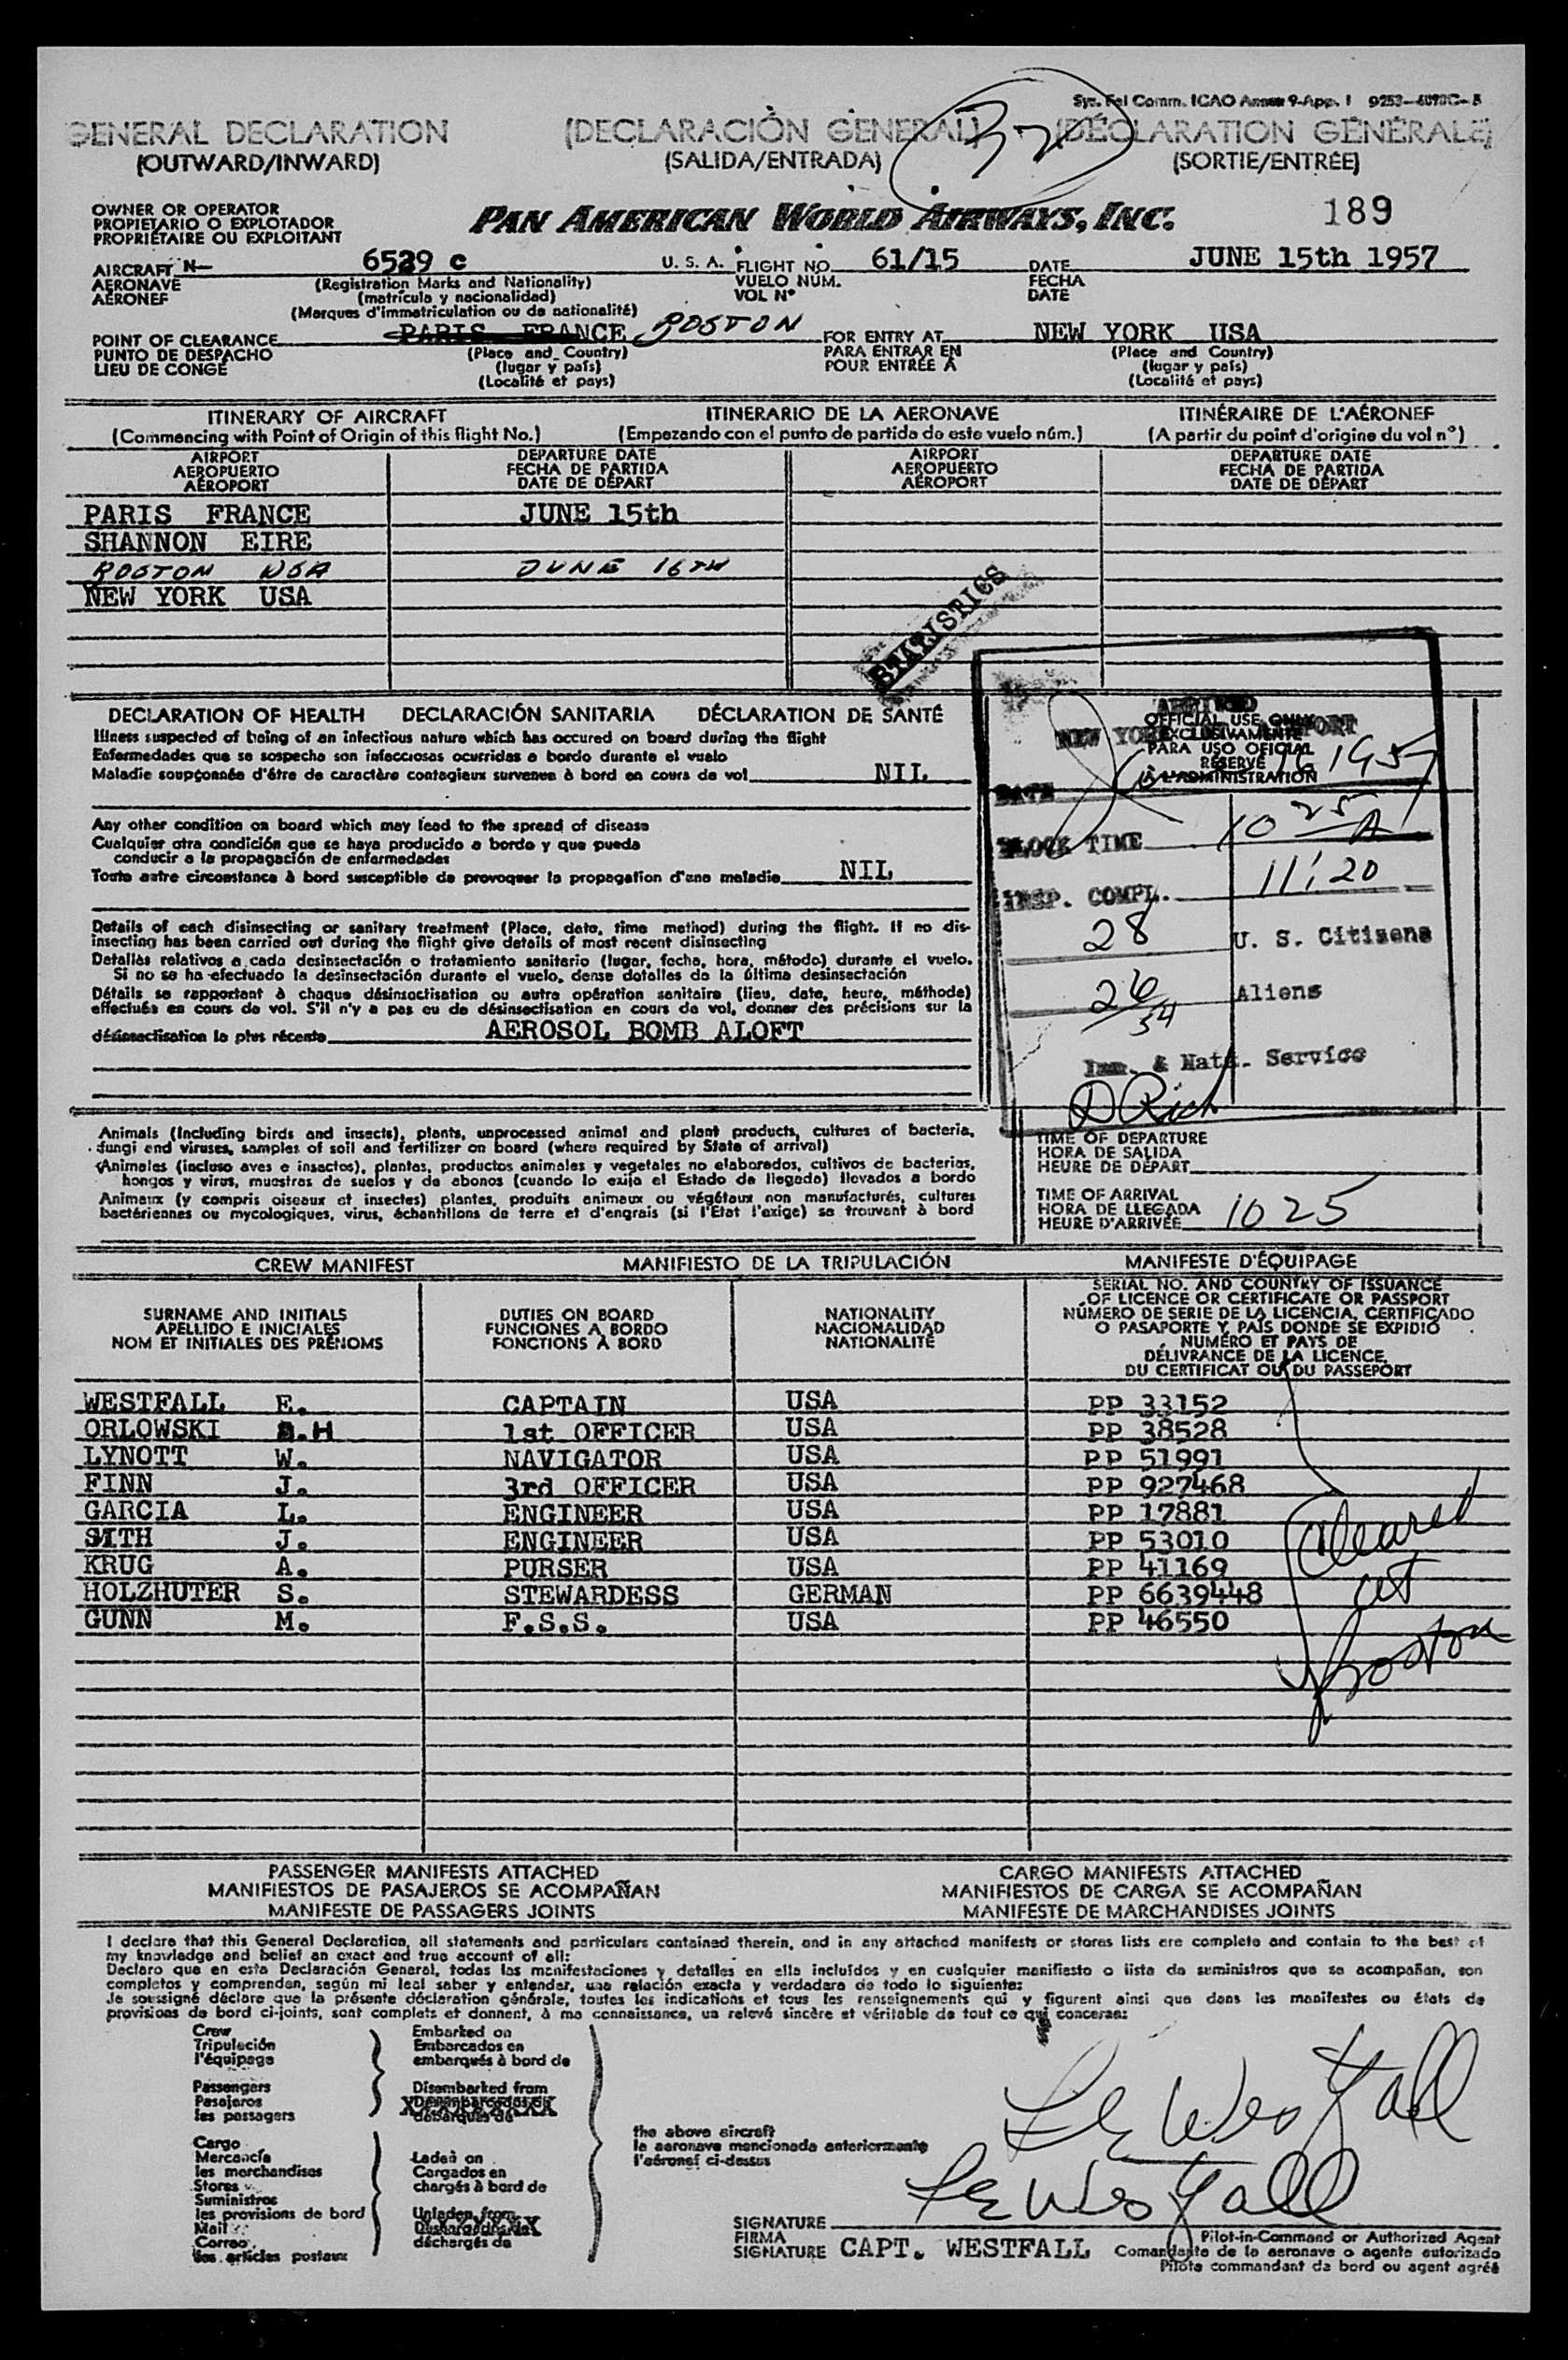 Annex 9-App. 1
GENERAL DECLARATION (DECLARACIÓN GENERAL) (DÉCLARATION GÉNÉRALE)
(OUTWARD/INWARD) (SALIDA/ENTRADA) (SORTIE/ENTRÉE)
OWNER OR OPERATOR
PROPIETARIO O EXPLOTADOR
PROPRIÉTAIRE OU EXPLOITANT
PAN AMERICAN WORLD AIRWAYS, INC. 189
AIRCRAFT N- 6529 c U. S. A. FLIGHT NO. 61/15 DATE JUNE 15th 1957
AERONAVE (Registration Marks and Nationality) VUELO NÚM. FECHA
AÉRONEF (matrícula y nacionalidad) VOL Nº DATE
(Marques d'immatriculation ou de nationalité)
POINT OF CLEARANCE PARIS FRANCE BOSTON FOR ENTRY AT NEW YORK USA
PUNTO DE DESPACHO (Place and Country) PARA ENTRAR EN (Place and Country)
LIEU DE CONGÉ (lugar y país) POUR ENTRÉE A (lugar y país)
(Localité et pays) (Localité et pays)
ITINERARY OF AIRCRAFT ITINERARIO DE LA AERONAVE ITINÉRAIRE DE L'AÉRONEF
(Commencing with Point of Origin of this flight No.) (Empezando con el punto de partida de este vuelo núm.) (A partir du point d'origine du vol nº)
AIRPORT DEPARTURE DATE AIRPORT DEPARTURE DATE
AEROPUERTO FECHA DE PARTIDA AEROPUERTO FECHA DE PARTIDA
AÉROPORT DATE DE DÉPART AÉROPORT DATE DE DÉPART
PARIS FRANCE JUNE 15th
SHANNON EIRE
BOSTON USA JUNE 16TH
NEW YORK USA
STATISTICS
DECLARATION OF HEALTH DECLARACIÓN SANITARIA DÉCLARATION DE SANTÉ
Illness suspected of being of an infectious nature which has occured on board during the flight
Enfermedades que se sospecha son infecciosas ocurridas a bordo durante el vuelo
Maladie soupçonnée d'être de caractère contagieux survenue à bord en cours de vol NIL
Any other condition on board which may lead to the spread of disease
Cualquier otra condición que se haya producido a bordo y que pueda
conducir a la propagación de enfermedades
Toute autre circonstance à bord susceptible de provoquer la propagation d'une maladie NIL
Details of each disinsecting or sanitary treatment (Place, date, time method) during the flight. If no dis-
insecting has been carried out during the flight give details of most recent disinsecting
Detallas relativos a cada desinsectación o tratamiento sanitario (lugar, fecha, hora, método) durante el vuelo.
Si no se ha efectuado la desinsectación durante el vuelo, dense detalles de la última desinsectación
Détails se rapportant à chaque désinsectisation ou autre opération sanitaire (lieu, date, heure, méthode)
effectués en cours de vol. S'il n'y a pas eu de désinsectisation en cours de vol, donner des précisions sur la
désinsectisation la plus récente AEROSOL BOMB ALOFT
ARRIVED
NEW YORK AIRPORT
OFFICIAL USE ONLY
EXCLUSIVAMENTE
PARA USO OFICIAL
RÉSERVÉ
À L'ADMINISTRATION
DATE 16 1957
BLOCK TIME 10 25 A
INSP. COMPL. 11:20
28 U. S. Citizens
26 Aliens
54
Imm. & Natz. Service
D Rich
Animals (Including birds and insects), plants, unprocessed animal and plant products, cultures of bacteria,
fungi and viruses, samples of soil and fertilizer on board (where required by State of arrival)
Animales (incluso aves e insectos), plantas, productos animales y vegetales no elaborados, cultivos de bacterias,
hongos y virus, muestras de suelos y de abonos (cuando lo exija el Estado de llegada) llevados a bordo
Animaux (y compris oiseaux et insectes) plantes, produits animaux ou végétaux non manufacturés, cultures
bactériennes ou mycologiques, virus, échantillons de terre et d'engrais (si l'État l'exige) se trouvant à bord
TIME OF DEPARTURE
HORA DE SALIDA
HEURE DE DÉPART
TIME OF ARRIVAL
HORA DE LLEGADA
HEURE D'ARRIVÉE 1025
CREW MANIFEST MANIFIESTO DE LA TRIPULACIÓN MANIFESTE D'ÉQUIPAGE
SURNAME AND INITIALS
APELLIDO E INICIALES
NOM ET INITIALES DES PRÉNOMS
DUTIES ON BOARD
FUNCIONES A BORDO
FONCTIONS À BORD
NATIONALITY
NACIONALIDAD
NATIONALITÉ
SERIAL NO. AND COUNTRY OF ISSUANCE
OF LICENCE OR CERTIFICATE OR PASSPORT
NÚMERO DE SERIE DE LA LICENCIA, CERTIFICADO
O PASAPORTE Y PAÍS DONDE SE EXPIDIÓ
NUMÉRO ET PAYS DE
DÉLIVRANCE DE LA LICENCE,
DU CERTIFICAT OU DU PASSEPORT
WESTFALL E. CAPTAIN USA PP 33152
ORLOWSKI .H 1st OFFICER USA PP 38528
LYNOTT W. NAVIGATOR USA PP 51991
FINN J. 3rd OFFICER USA PP 927468
GARCIA L. ENGINEER USA PP 17881
SMITH J. ENGINEER USA PP 53010
KRUG A. PURSER USA PP 41169
HOLZHUTER S. STEWARDESS GERMAN PP 6639448
GUNN M. F.S.S. USA PP 46550
Cleared
at
Boston
PASSENGER MANIFESTS ATTACHED CARGO MANIFESTS ATTACHED
MANIFIESTOS DE PASAJEROS SE ACOMPAÑAN MANIFIESTOS DE CARGA SE ACOMPAÑAN
MANIFESTE DE PASSAGERS JOINTS MANIFESTE DE MARCHANDISES JOINTS
I declare that this General Declaration, all statements and particulars contained therein, and in any attached manifests or stores lists are complete and contain to the best of
my knowledge and belief an exact and true account of all:
Declaro que en esta Declaración General, todas las manifestaciones y detalles en ella incluídos y en cualquier manifiesto o lista de suministros que se acompañan, son
completos y comprenden, según mi leal saber y entender, una relación exacta y verdadera de todo lo siguiente:
Je soussigné déclare que la présente déclaration générale, toutes les indications et tous les renseignements qui y figurent ainsi que dans les manifestes ou états de
provisions de bord ci-joints, sont complets et donnent, à ma connaissance, un relevé sincère et véritable de tout ce qui concerne:
Crew
Tripulación
l'équipage
Passengers
Pasajeros
les passagers
Embarked on
Embarcados en
embarqués à bord de
Disembarked from
Desembarcados de
débarqués de
Cargo
Mercancía
les merchandises
Stores
Suministros
les provisions de bord
Mail
Correo
les articles postaux
Laden on
Cargados en
chargés à bord de
Unladen from
Descargados de
déchargés de
the above aircraft
la aeronave mencionada anteriormente
l'aéronef ci-dessus
Westfall
Westfall
SIGNATURE
FIRMA
SIGNATURE CAPT. WESTFALL
Pilot-in-Command or Authorized Agent
Comandante de la aeronave o agente autorizado
Pilote commandant de bord ou agent agréé